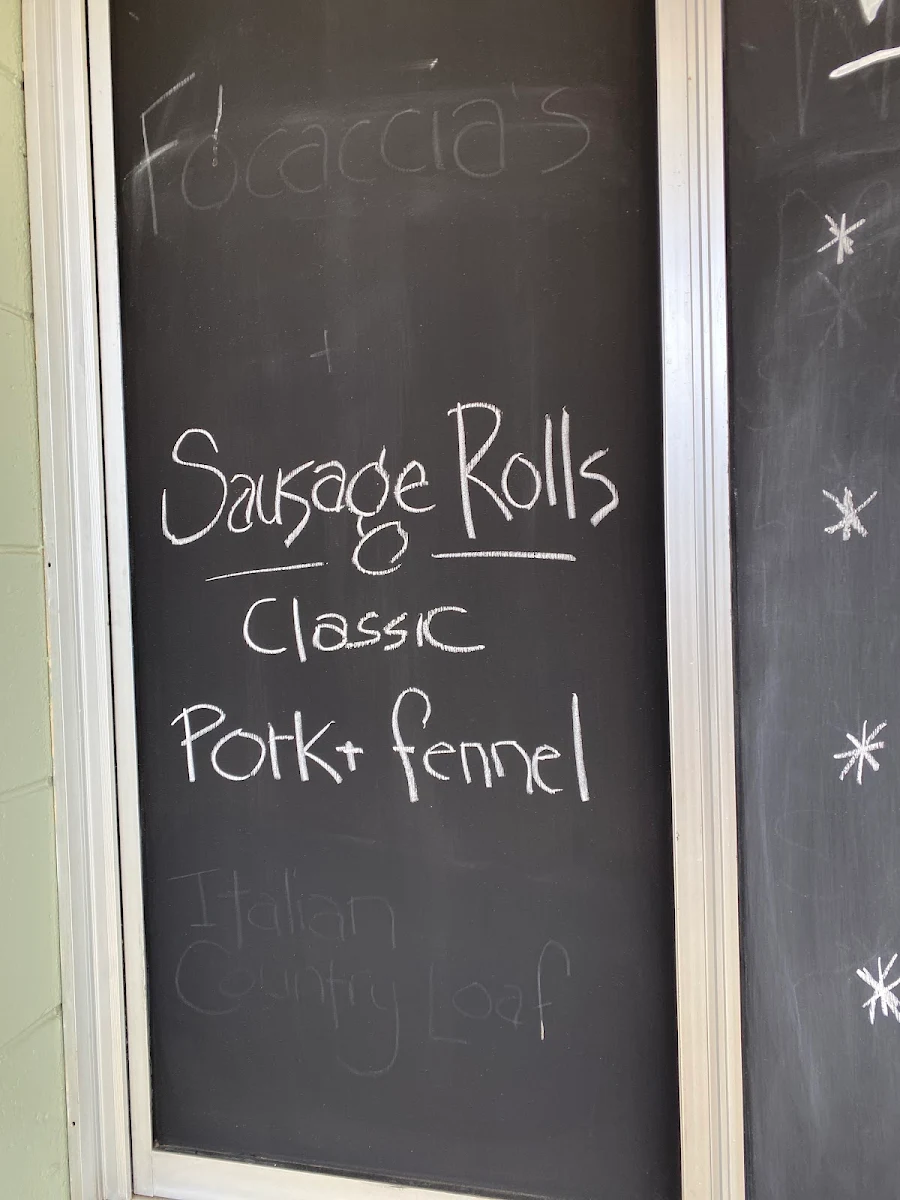 Focaccia's
+
Sausage Rolls
Classic
Pork + fennel
Italian
Country Loaf
*
*
*
*